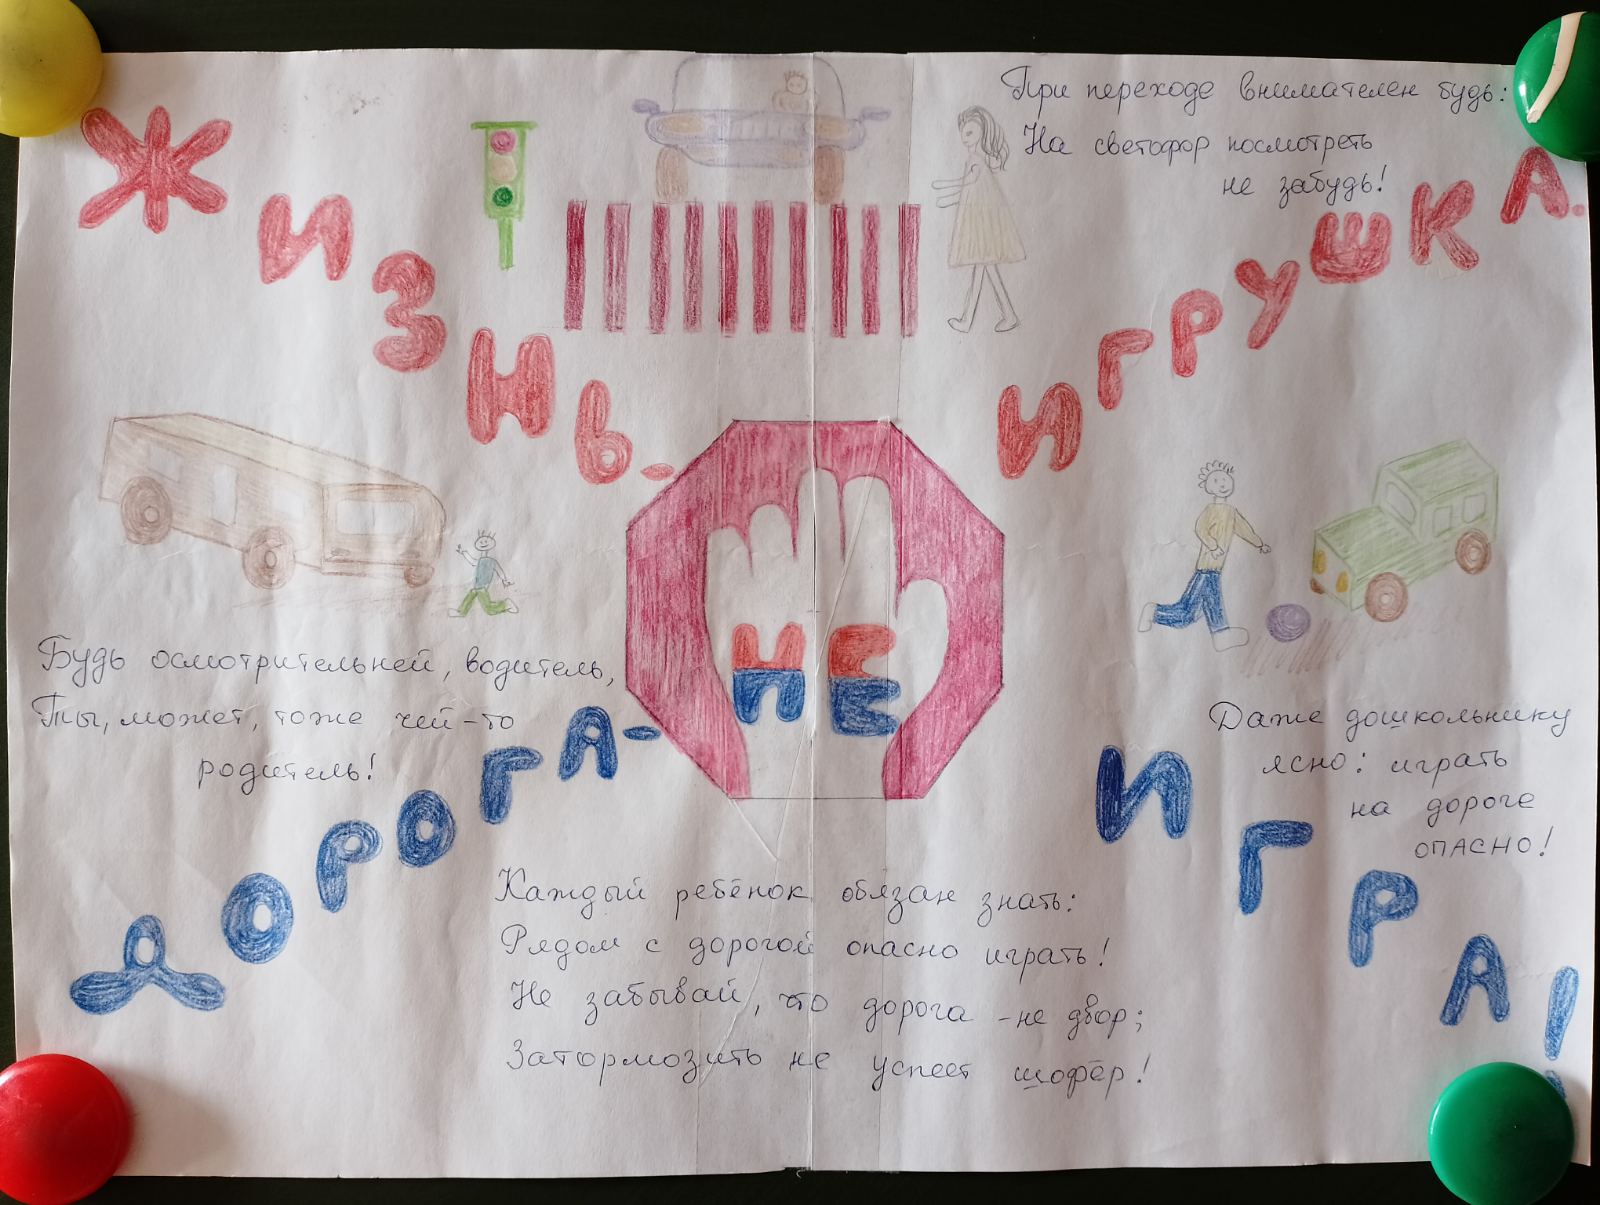 При переходе внимателен будь:
На светофор посмотреть
не забудь!
ЖИЗНЬ - НЕ ИГРУШКА.
Будь осмотрительней, водитель,
Ты, может, тоже чей-то
родитель!
Даже дошкольнику
ясно: играть
на дороге
ОПАСНО!
ДОРОГА - НЕ ИГРА!
Каждый ребёнок обязан знать:
Рядом с дорогой опасно играть!
Не забывай, что дорога - не двор;
Затормозить не успеет шофёр!